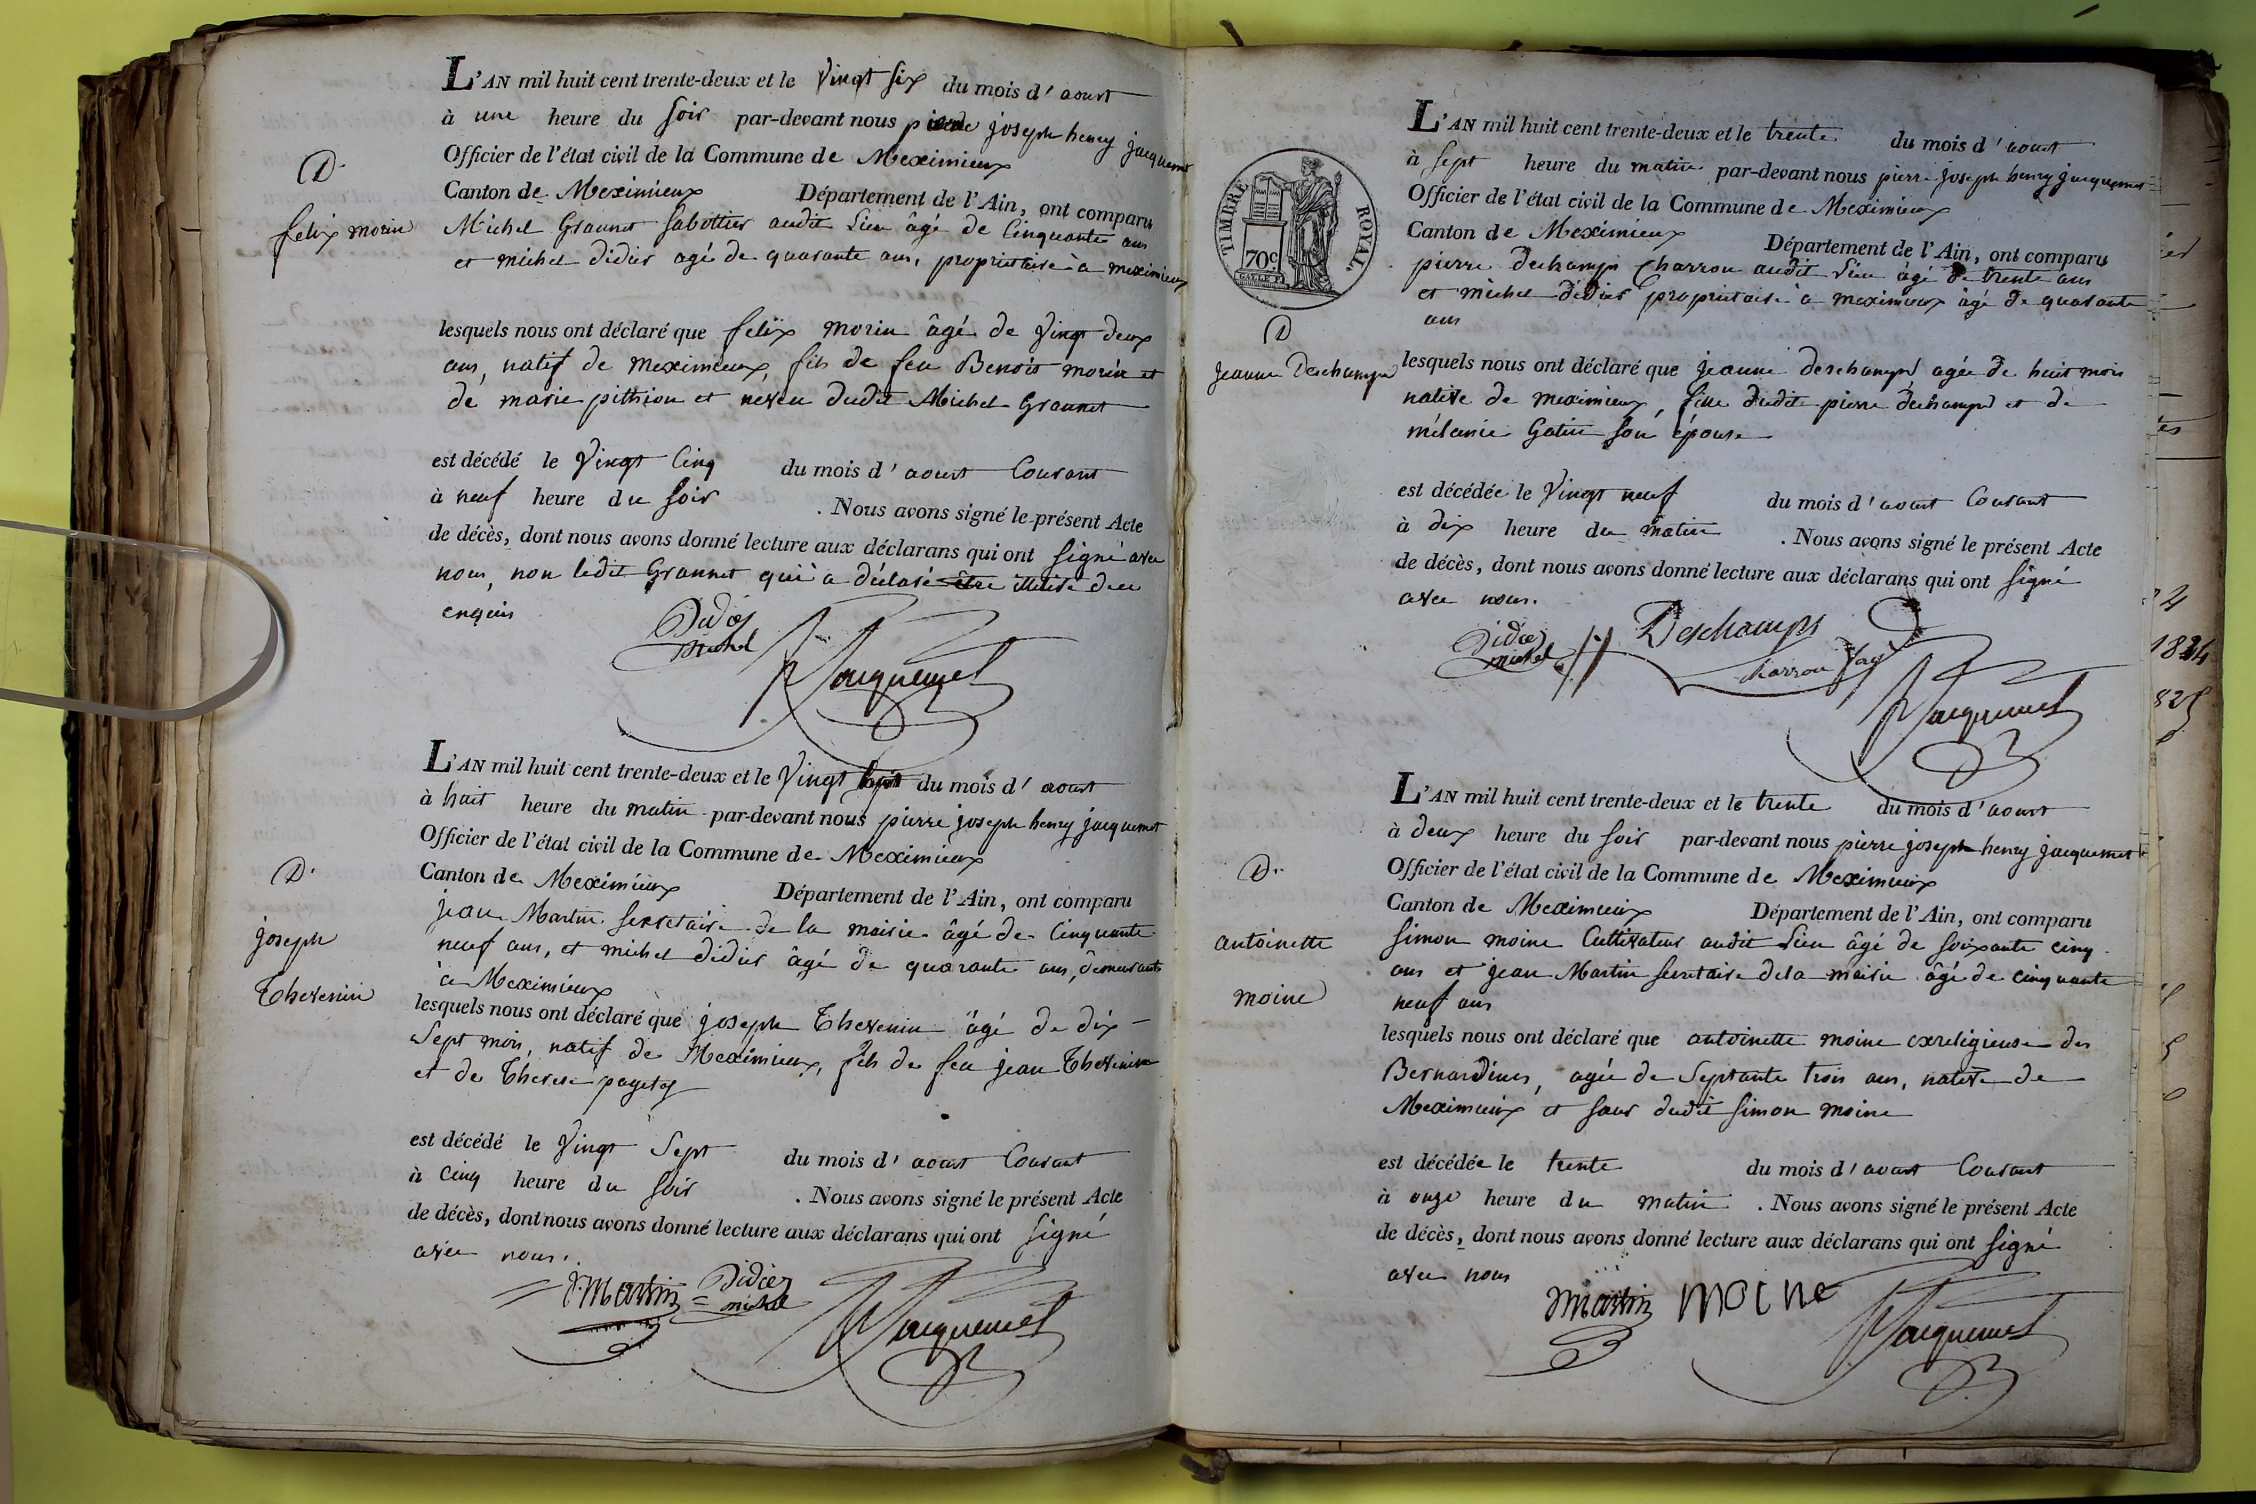 L'AN mil huit cent trente-deux et le Vingt six du mois d'aoust
à une heure du soir par-devant nous pierre joseph henry jacquemet
Officier de l'état civil de la Commune de Meximieux
D.
Canton de Meximieux Département de l'Ain, ont comparu
felix morin
Michel Graunet Sabottier audit Lieu âgé de Cinquante ans
et michel didier agé de quarante ans, proprietaire à meximieux
lesquels nous ont déclaré que felix morin âgé de Vingt deux
ans, natif de meximieux, fils de feu Benoit morin et
de marie pithion et neveu dudit Michel Graunet
est décédé le Vingt Cinq du mois d'aoust Courant
à neuf heure du soir . Nous avons signé le présent Acte
de décès, dont nous avons donné lecture aux déclarans qui ont signé avec
nous, non ledit Graunet qui a déclaré être illitéré de ce
enquis
Didier
michel
Jacquemet
L'AN mil huit cent trente-deux et le Vingt huit du mois d'aoust
à huit heure du matin par-devant nous pierre joseph henry jacquemet
Officier de l'état civil de la Commune de Meximieux
D.
Canton de Meximieux Département de l'Ain, ont comparu
jean Martin secretaire de la mairie âgé de Cinquante
joseph
neuf ans, et michel didier âgé de quarante ans, demeurants
à Meximieux
Thevenin
lesquels nous ont déclaré que joseph Thevenin âgé de dix
Sept mois, natif de Meximieux, fils de feu jean Thevenin
et de Therese pagety
est décédé le Vingt Sept du mois d'aoust Courant
à Cinq heure du soir . Nous avons signé le présent Acte
de décès, dont nous avons donné lecture aux déclarans qui ont signé
avec nous.
J. Martin Didier
michel
Jacquemet
L'AN mil huit cent trente-deux et le trente du mois d'aoust
à sept heure du matin par-devant nous pierre joseph henry jacquemet
Officier de l'état civil de la Commune de Meximieux
TIMBRE ROYAL.
70c
Canton de Meximieux Département de l'Ain, ont comparu
pierre dechamps Charron audit Lieu âgé de trente ans
et michel didier proprietaire à meximieux âgé de quarante
ans
D
jeanne Deschamps
lesquels nous ont déclaré que jeanne deschamps agée de huit mois
native de meximieux, fille dudit pierre dechamps et de
mélanie Gatin son épouse
est décédée le Vingt neuf du mois d'aoust Courant
à dix heure du matin . Nous avons signé le présent Acte
de décès, dont nous avons donné lecture aux déclarans qui ont signé
avec nous.
Didier
michel
Deschamps
charron
Jacquemet
L'AN mil huit cent trente-deux et le trente du mois d'aoust
à deux heure du soir par-devant nous pierre joseph henry jacquemet
Officier de l'état civil de la Commune de Meximieux
D.
Canton de Meximieux Département de l'Ain, ont comparu
antoinette
simon moine Cultivateur audit Lieu âgé de soixante cinq
ans et jean Martin secretaire dela mairie âgé de cinquante
moine
neuf ans
lesquels nous ont déclaré que antoinette moine exreligieuse des
Bernardines, agée de Septante trois ans, native de
Meximieux et sœur dudit simon moine
est décédée le trente du mois d'aoust Courant
à onze heure du matin . Nous avons signé le présent Acte
de décès, dont nous avons donné lecture aux déclarans qui ont signé
avec nous
J Martin moine
Jacquemet